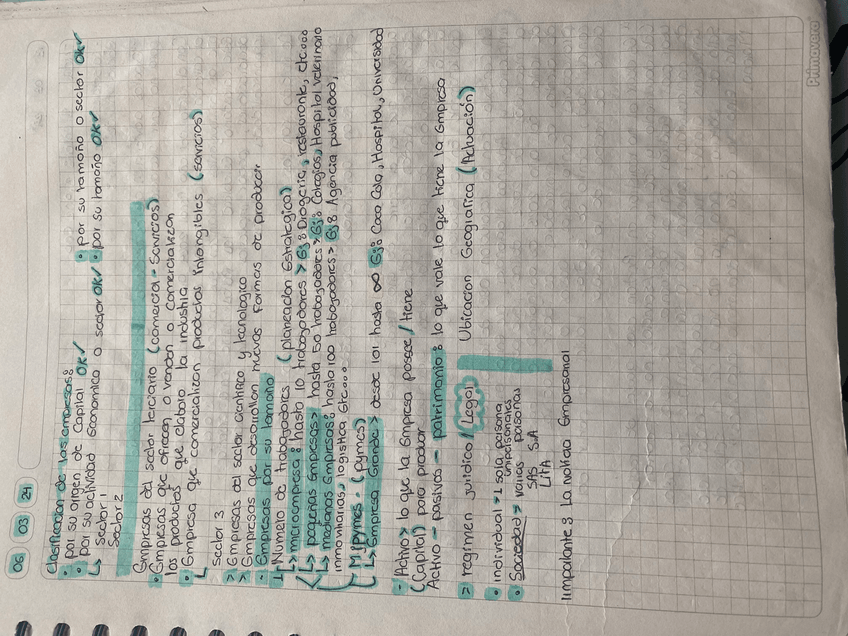 06 03 24
Clasificacion de las empresas:
• por su origen de Capital OK✓ • por su tamaño o sector OK✓
• por su actividad Economica o sector OK✓ • por su tamaño OK✓
↳ Sector 1
Sector 2
Empresas del sector terciario (comercial - servicios)
• Empresas que ofrecen o venden o comercializan
los productos que elabora la industria
• Empresa que comercializan productos intangibles (servicios)
↳ sector 3
> Empresas del sector cientifico y tecnologico
> Empresas que desarrollan nuevas formas de producir
- Empresas por su tamaño
↳ Numero de trabajadores (planeacion Estrategica)
↳ microempresa: hasta 10 trabajadores > Ej: Drogeria, restaurante, etc...
↳ pequeñas Empresas> hasta 50 trabajadores > Ej: Colegios, Hospital veterinario
↳ medianas Empresas: hasta 100 trabajadores > Ej: Agencia publicidad,
inmoviliarias, logistica Etc...
Mipymes. (pymes)
↳ Empresa Grande > desde 101 hasta ∞ Ej: Coca Cola, Hospital, Universidad
- Activo > lo que la Empresa possee / tiene
(Capital) para producir
Activo - pasivos - patrimonio: lo que vale lo que tiene la Empresa
> regimen juridico / Legal Ubicacion Geografica (Actuación)
• individual > 1 sola persona
unipersonales
• Sociedad > varias personas
SAS S.A
LTDA
Importante: La Notica Empresarial
Primavera